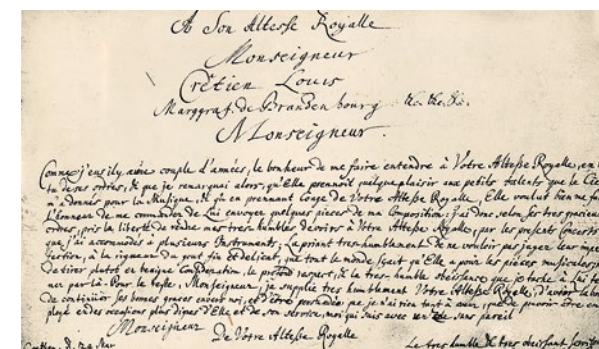 A Son Altesse Royalle
Monseigneur
Crêtien Louis
Marggraf de Brandenbourg &c. &c. &c.
Monseigneur.
Comme j'eus il y a une couple d'années, le bonheur de me faire entendre à Votre Altesse Royalle, en
tu de ses ordres, & que je remarquai alors, qu'Elle prennoit quelque plaisir aux petits talents que le Ciel
m'a donnés pour la Musique, & qu'en prennant Conge de Votre Altesse Royalle, Elle voulut bien me fai
l'honneur de me commander de Lui envoyer quelques pieces de ma Composition: j'ai donc selon ses tres gracieux
ordres, pris la liberté de rendre mes tres-humbles devoirs à Votre Altesse Royalle, par les presents Concerts
que j'ai accommodés à plusieurs Instruments; La priant tres-humblement de ne vouloir pas juger leur imper
fection, à la rigueur du gout fin et delicat, que tout le monde sçait qu'Elle a pour les pièces musicales;
de tirer plutot en benigne Consideration, le profond respect, & la tres-humble obeissance que je tache à Lui te
ner par là. Pour le reste, Monseigneur, je supplie tres humblement Votre Altesse Royalle, d'avoir la bon
de continüer ses bonnes graces envers moi, et d'être persuadée que je n'ai rien tant à cœur, que de pouvoir être em
ployé en des occasions plus dignes d'Elle et de son service, moi qui suis avec un zele sans pareil
Monseigneur
De Votre Altesse Royalle
d. 24 Mar
Le tres humble & tres obeissant